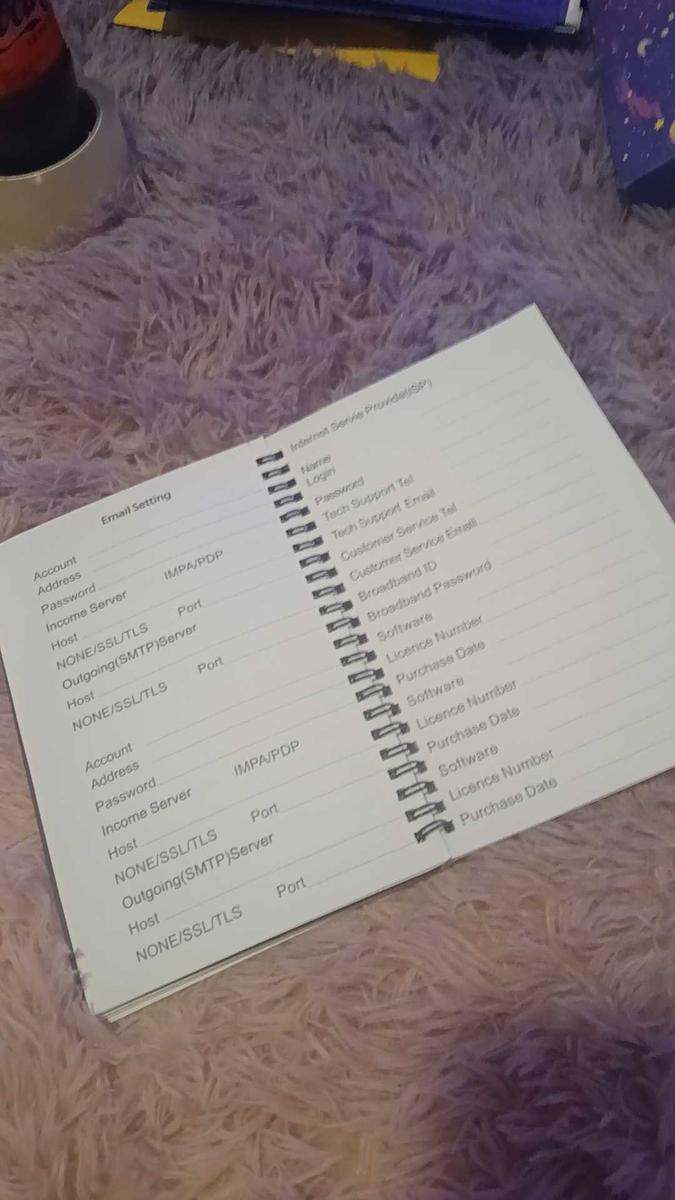 Email Setting
Account
Address
Password
Income Server IMPA/PDP
Host
NONE/SSL/TLS Port
Outgoing(SMTP)Server
Host
NONE/SSL/TLS Port
Account
Address
Password
Income Server IMPA/PDP
Host
NONE/SSL/TLS Port
Outgoing(SMTP)Server
Host
NONE/SSL/TLS Port
Internet Servie Provide(ISP)
Name
Login
Password
Tech Support Tel
Tech Support Email
Customer Service Tel
Customer Service Email
Broadband ID
Broadband Password
Software
Licence Number
Purchase Date
Software
Licence Number
Purchase Date
Software
Licence Number
Purchase Date